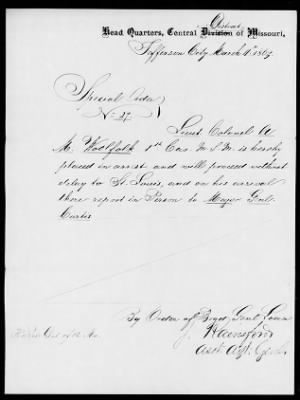 District
Head Quarters, Central Division of Missouri,
Jefferson City March 4th 1863
Special Order
No 37
Lieut Colonel A
M. Woolfolk 1st Cav M S M is hereby
placed in arrest and will proceed without
delay to St. Louis, and on his arrival
there report in Person to Major Genl
Curtis
By Order of Brigr Genl Loan
J. Rainsford
Asst Adjt Genl